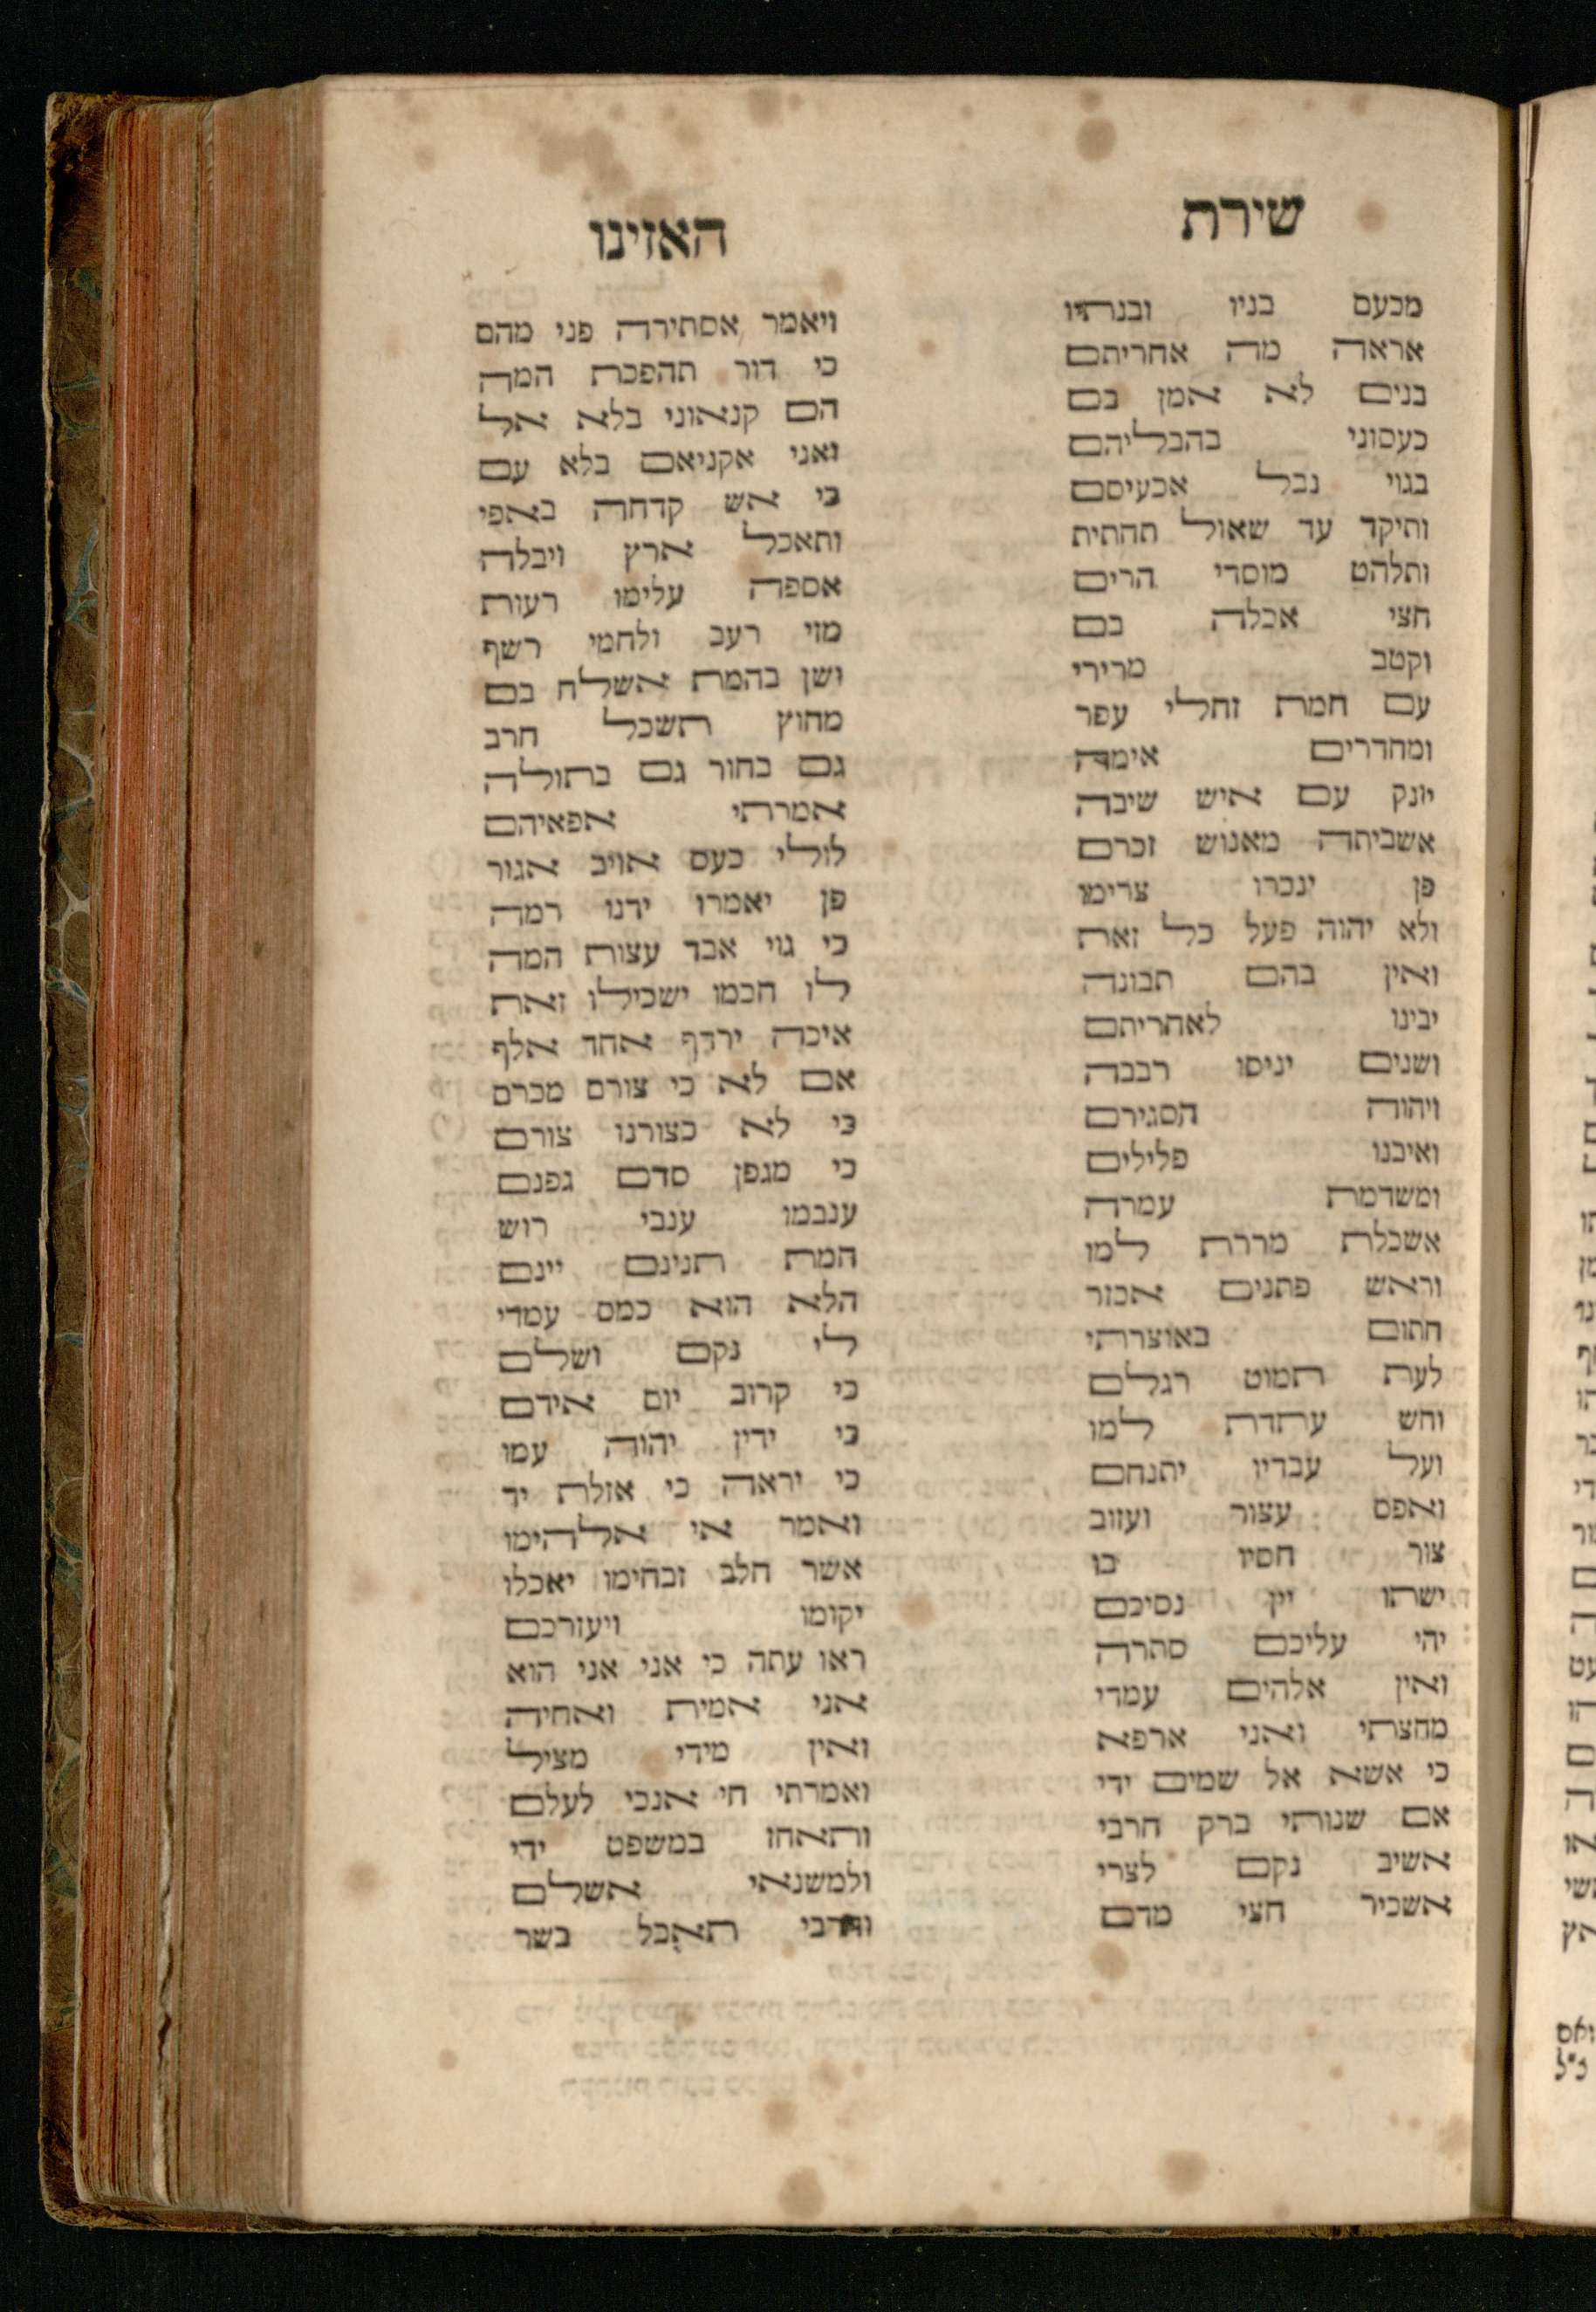 שירת האזינו
מכעס בניו ובנתיו ויאמר אסתירה פני מהם
אראה מה אחריתם כי דור תהפכת המה
בנים לא אמן בם הם קנאוני בלא אל
כעסוני בהבליהם ואני אקניאם בלא עם
בגוי נבל אכעיסם כי אש קדחה באפי
ותיקד עד שאול תחתית ותאכל ארץ ויבלה
ותלהט מוסדי הרים אספה עלימו רעות
חצי אכלה בם מזי רעב ולחמי רשף
וקטב מרירי ושן בהמת אשלח בם
עם חמת זחלי עפר מחוץ תשכל חרב
ומחדרים אימה גם בחור גם בתולה
יונק עם איש שיבה אמרתי אפאיהם
אשביתה מאנוש זכרם לולי כעס אויב אגור
פן ינכרו צרימו פן יאמרו ידנו רמה
ולא יהוה פעל כל זאת כי גוי אבד עצות המה
ואין בהם תבונה לו חכמו ישכילו זאת
יבינו לאחריתם איכה ירדף אחד אלף
ושנים יניסו רבבה אם לא כי צורם מכרם
ויהוה הסגירם כי לא כצורנו צורם
ואיבנו פלילים כי מגפן סדם גפנם
ומשדמת עמרה ענבמו ענבי רוש
אשכלת מררת למו חמת תנינם יינם
וראש פתנים אכזר הלא הוא כמס עמדי
חתום באוצרתי לי נקם ושלם
לעת תמוט רגלם כי קרוב יום אידם
וחש עתדת למו כי ידין יהוה עמו
ועל עבדיו יתנחם כי יראה כי אזלת יד
ואפס עצור ועזוב ואמר אי אלהימו
צור חסיו בו אשר חלב זבחימו יאכלו
ישתו יין נסיכם יקומו ויעזרכם
יהי עליכם סתרה ראו עתה כי אני אני הוא
ואין אלהים עמדי אני אמית ואחיה
מחצתי ואני ארפא ואין מידי מציל
כי אשא אל שמים ידי ואמרתי חי אנכי לעלם
אם שנותי ברק חרבי ותאחז במשפט ידי
אשיב נקם לצרי ולמשנאי אשלם
אשכיר חצי מדם וחרבי תאכל בשר